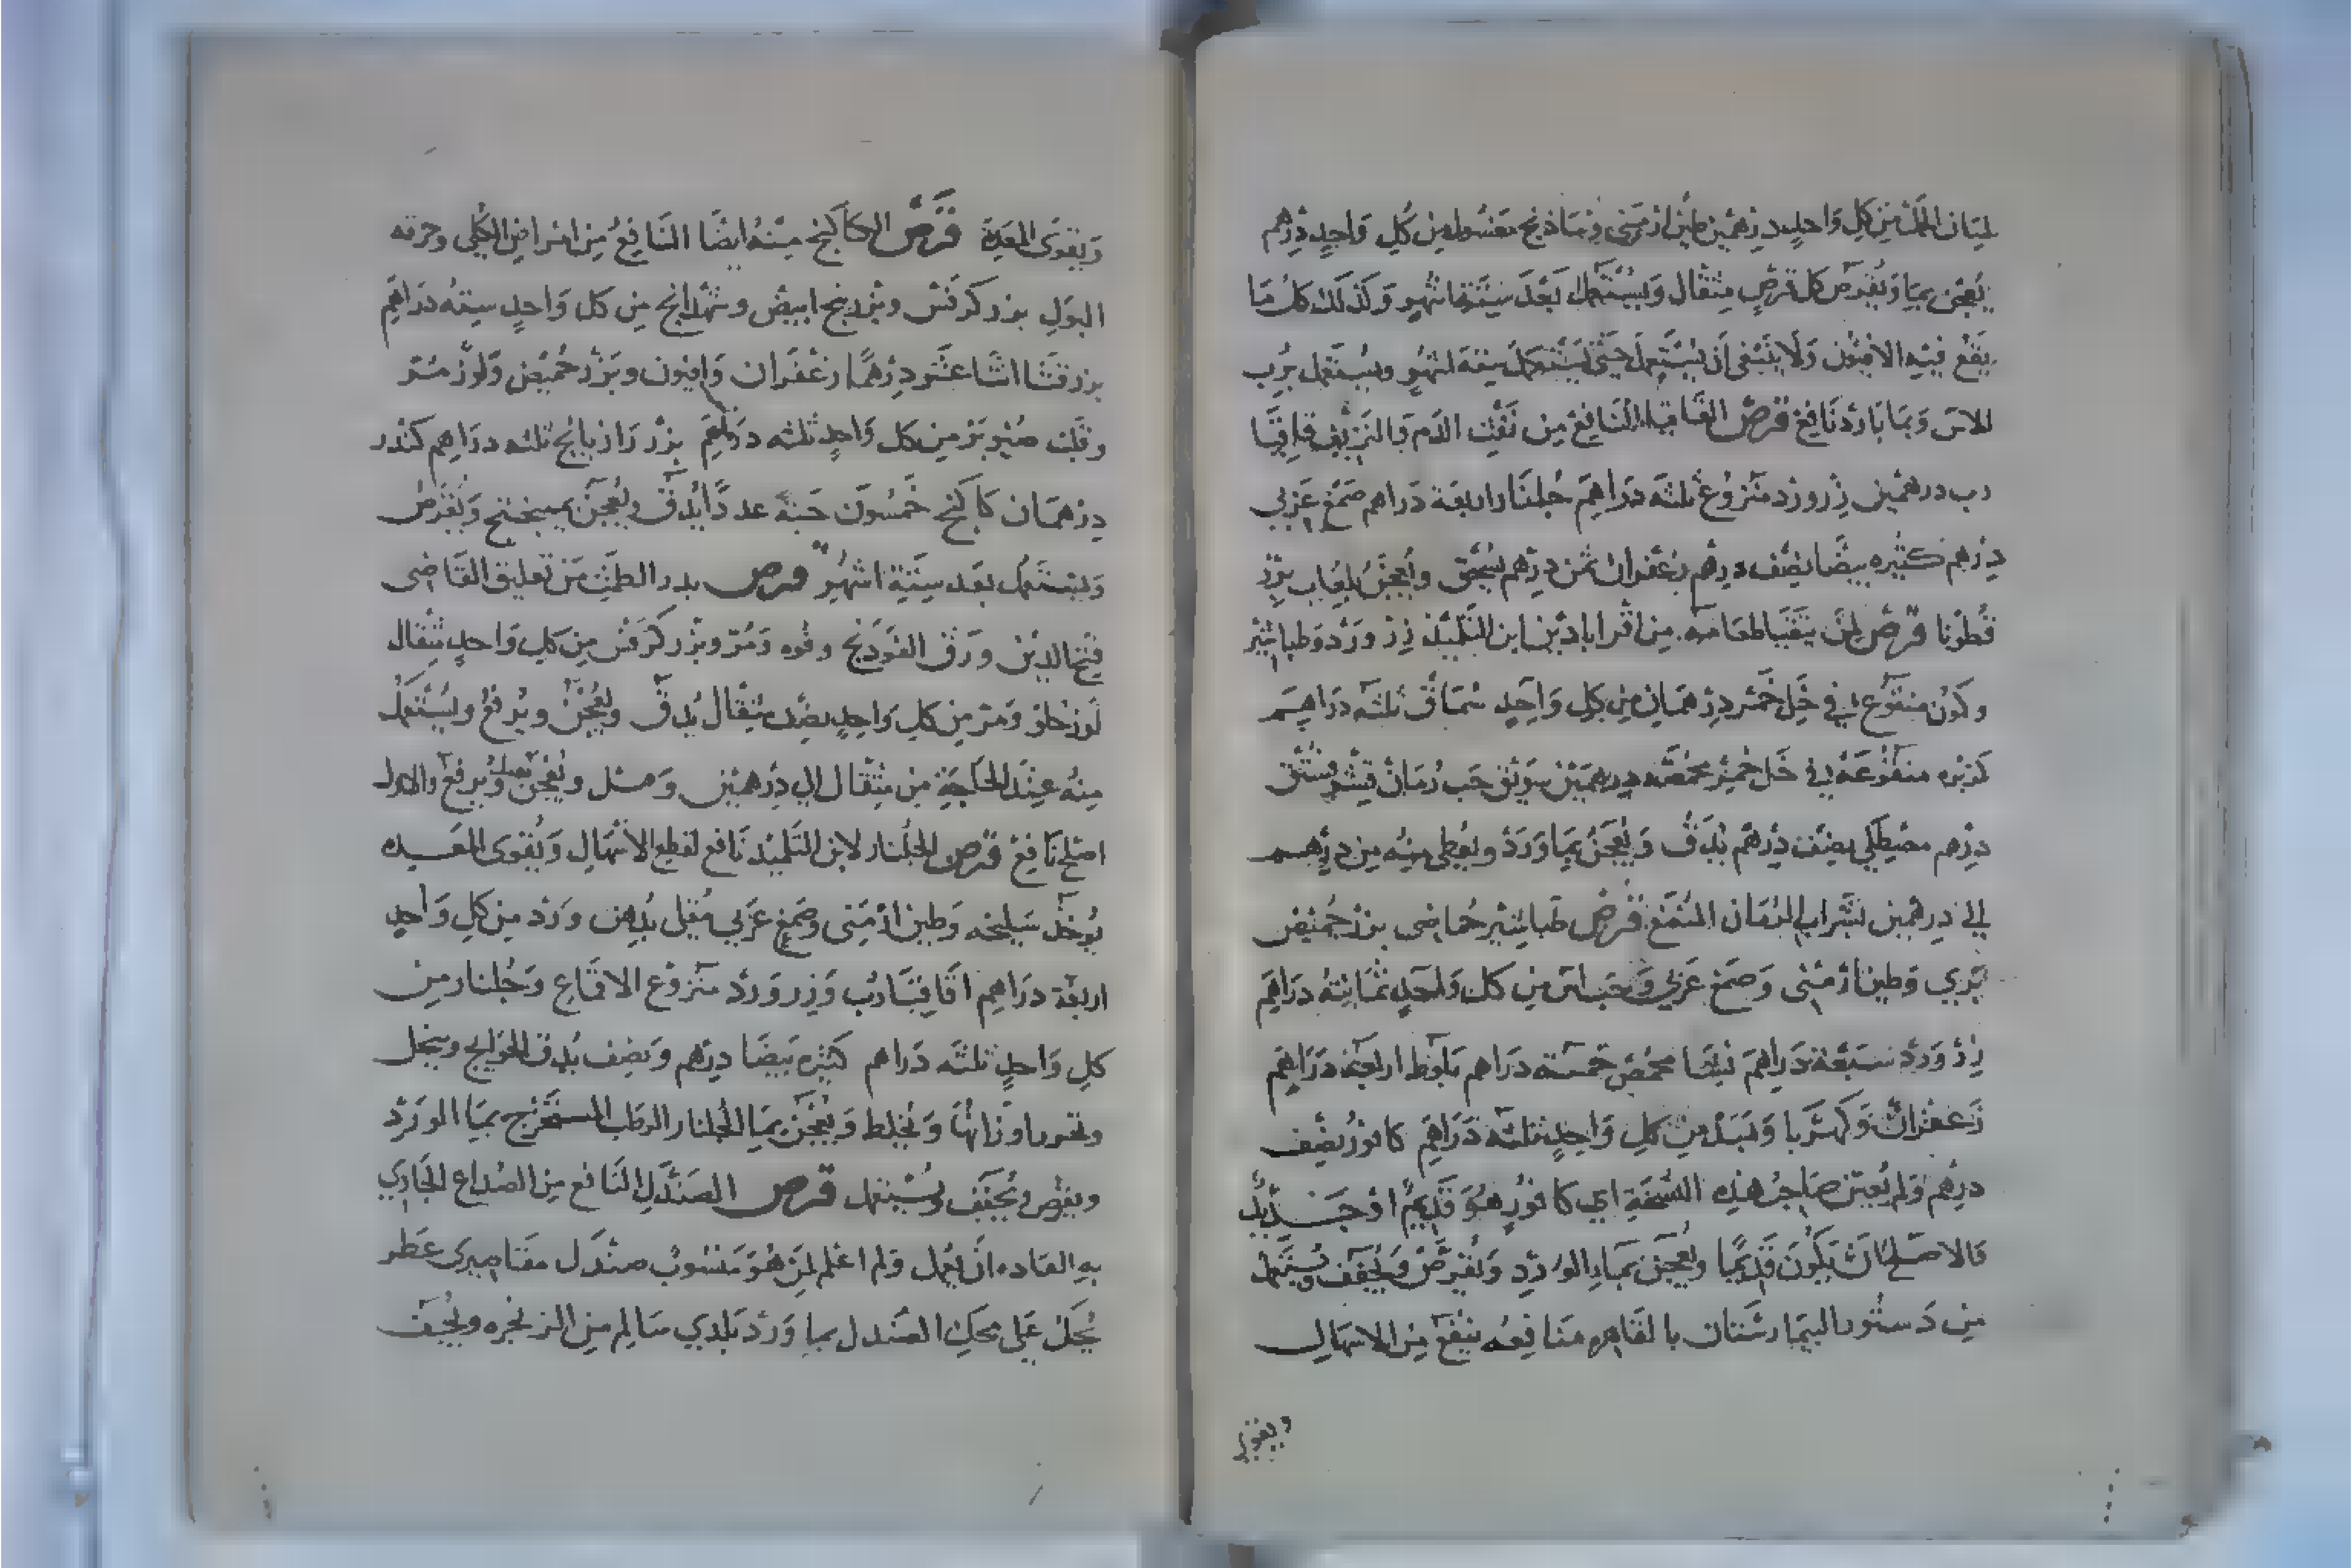 لبنان الحلك من كل واحد درهمين طين ارمني وشاذنج مغسول من كل واحد درهم
يعجن بما ويقرص كل قرص مثقال ويستعمل بعد ستة اشهر وكذلك كل ما
يقع فيه الافيون ولا ينبغي ان يستعمل حتى يستكمل ستة اشهر ويستعمل برب
الاس وبما بارد نافع قرص القاقيا النافع من نفث الدم والنزيف قاقيا
رب درهمين زر ورد منزوع ثلثه دراهم جلنار اربعة دراهم صمغ عربي
درهم كثيره بيضا نصف درهم زعفران ثمن درهم يسحق ويعجن بلعاب بزر
قطونا قرص لمن يتقيا طعامه من اقراباذين ابن التلميذ زر ورد وطباشير
وكمون منقوع في خل خمر درهمان من كل واحد سماق ثلثه دراهم
كزبره منقوعه في خل خمر محمصه درهمين سويق حب رمان قشر فستق
درهم مصطكي نصف درهم يدق ويعجن بما ورد ويعطى منه من درهم
الى درهمين بشراب الرمان المنعنع قرص طباشير حماضي بزر حميض
بري وطين ارمني وصمغ عربي وحب اس من كل واحد ثمانيه دراهم
زر ورد سبعة دراهم نشا محمص خمسه دراهم بلوط اربعة دراهم
زعفران وكهربا وسبد من كل واحد ثلثه دراهم كافور نصف
درهم ولم يعين صاحب هذه النسخة اي كافور هو قديم او جديد
فالاصلح ان يكون قديما ويعجن بماء الورد ويقرص ويجفف ويستعمل
من دستور البيمارستان بالقاهره منافعه ينفع من الاسهال
ويقوى
ويقوى المعدة قرص الكاكنج منه ايضا النافع من امراض الكلى وحرقه
البول بزر كرفس وبزر بنج ابيض وشهدانج من كل واحد سته دراهم
بزر قثا اثنا عشر درهما زعفران وافيون وبزر حميض ولوز مر
وقلب صنوبر من كل واحد ثلثه دراهم بزر رازيانج ثلثه دراهم كندر
درهمان كاكنج خمسون حبة عددا يدق ويعجن بميبختج ويقرص
ويستعمل بعد ستة اشهر قرص يدر الطمث من تعليق القاضى
فتح الدين ورق الفوذنج وفوه ومر وبزر كرفس من كل واحد مثقال
لوز حلو ومر من كل واحد نصف مثقال يدق ويعجن ويرفع ويستعمل
منه عند الحاجة من مثقال الى درهمين وعسل ويعجن بعسل ويرفع والاول
اصلح نافع قرص الجلنار لابن التلميذ نافع لقطع الاسهال ويقوى المعده
يوخذ سليخه وطين ارمنى وصمغ عربي مقلى بدهن ورد من كل واحد
اربعة دراهم اقاقيا رب وزر ورد منزوع الاقماع وجلنار من
كل واحد ثلثه دراهم كثيره بيضا درهم ونصف يدق الحوايج وينخل
وتحرر اوزانها وتخلط ويعجن بما الجلنار الرطب المستخرج بما الورد
ويقرص ويجفف ويستعمل قرص الصندل النافع من الصداع الجاري
به العاده ان يعمل ولم اعلم لمن هو منسوب صندل مقاصيرى عطر
يحك على محك الصندل بما ورد بلدي سالم من الزنجره ويجفف